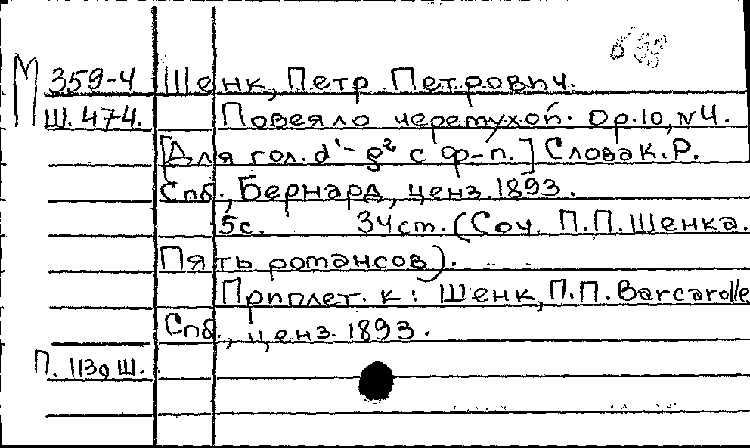 М 359-4 Шенк, Петр Петрович.
Ш. 474. Повеяло черемухой. Op. 10, N 4.
[Для гол. d¹-g² с ф-п.] Слова К. Р.
Спб., Бернард, ценз. 1893.
5с. 34см. (Соч. П.П. Шенка.
Пять романсов).
Приплет. к: Шенк, П.П. Barcarolle
Спб., ценз. 1893.
П. 113д Ш.